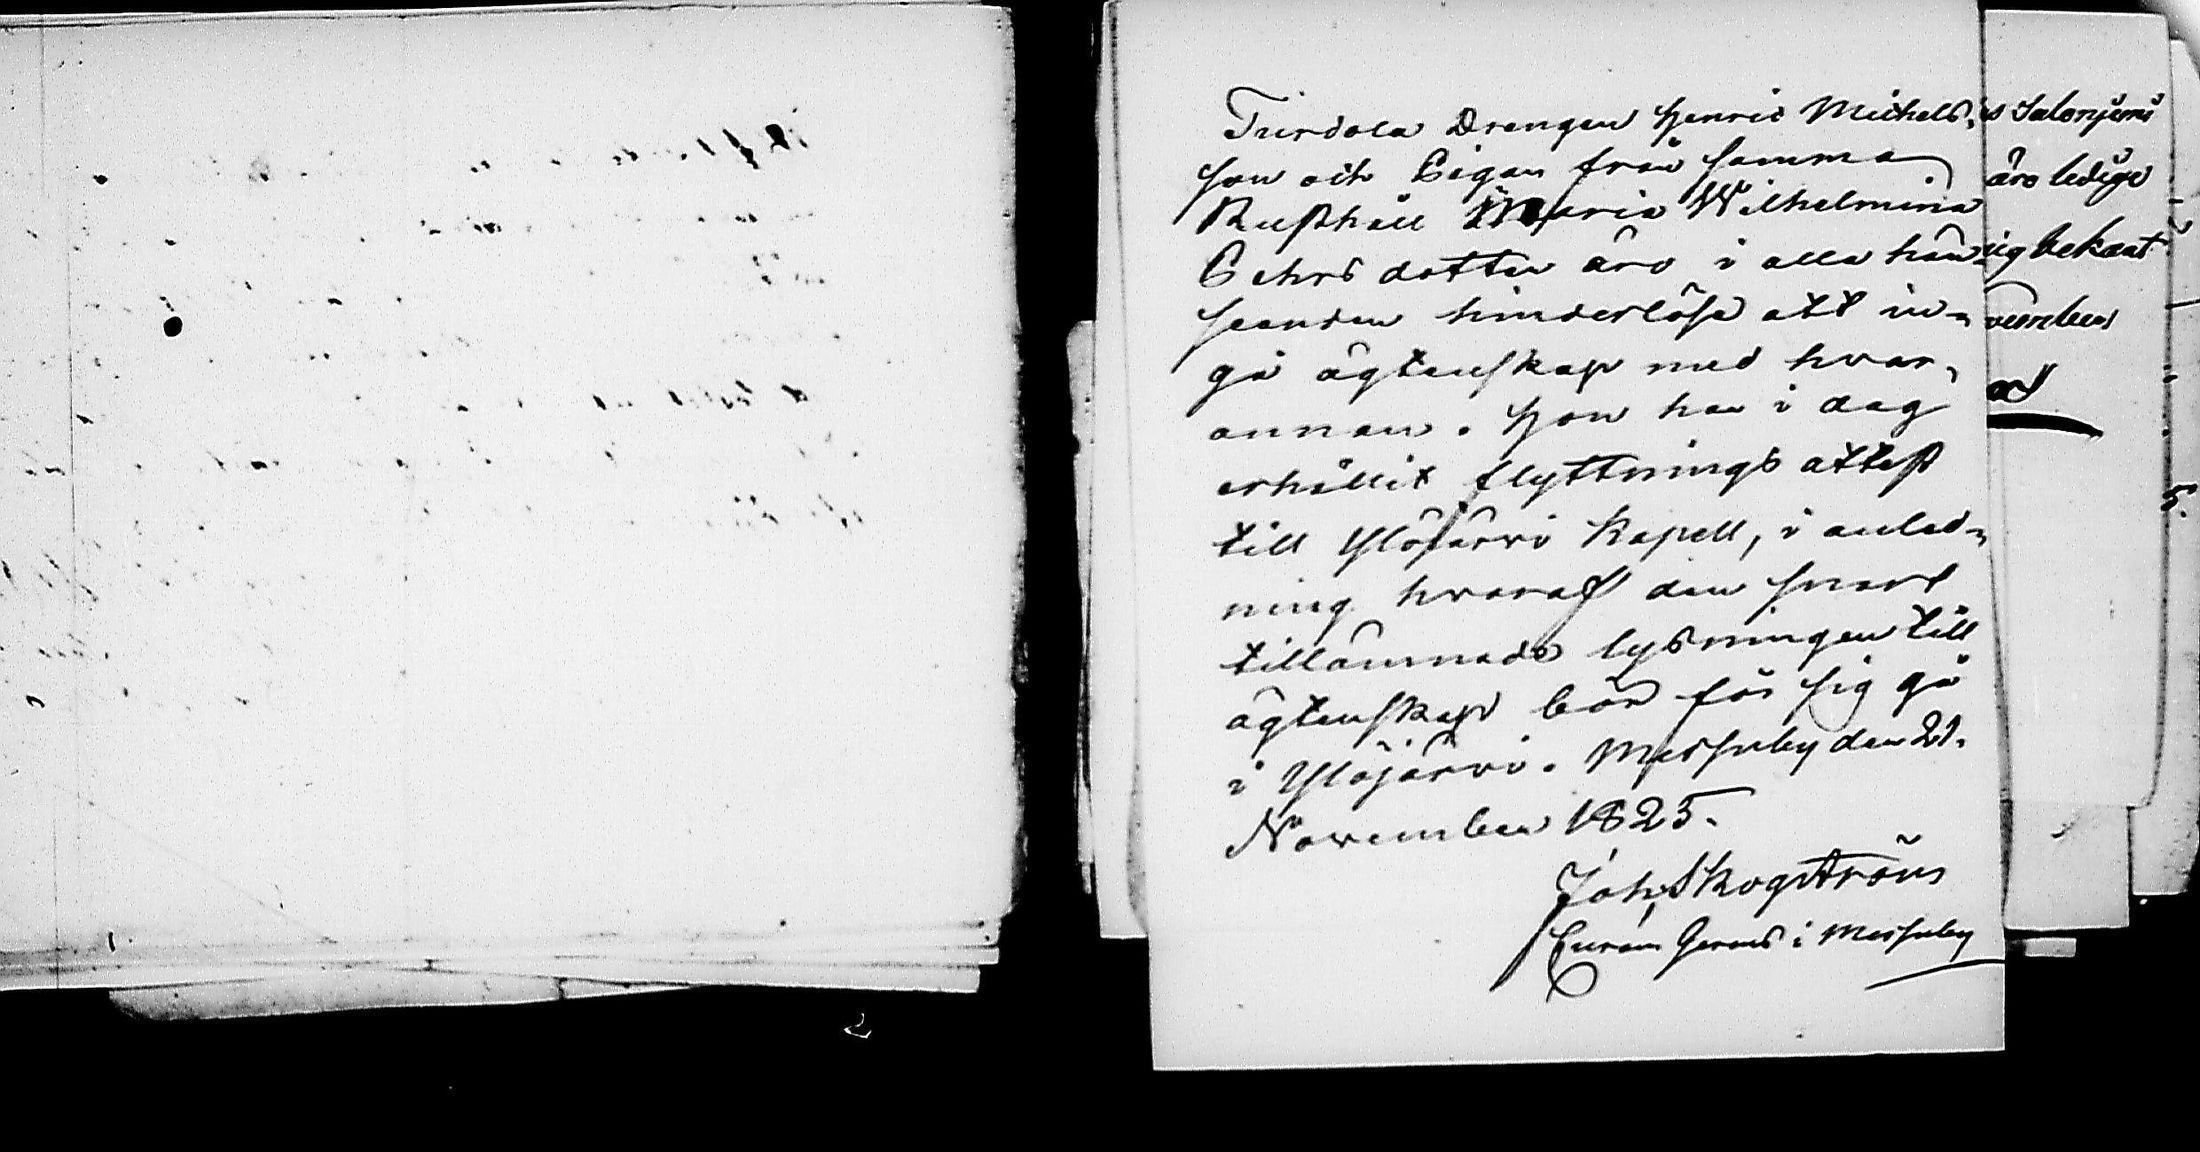 Turdola Drengen Henric Michels-
son och Pigan från samma
Rusthåll Maria Wilhelmina
Pehrsdotter äro i alla hän-
seenden hinderlöse att in-
gå ägtenskap med hvar-
annan. Hon har i dag
erhållit flyttnings attest
till Ylöjärvi Kapell, i anled-
ning hvaraf den snart
tillämnade lysningen till
ägtenskap bör för sig gå
i Ylöjärvi. Messuby den 21.
November 1825.
Joh. Skogström
i Messuby
Salonjemi
äro ledige
ig bekant
vember
5.
1.
2